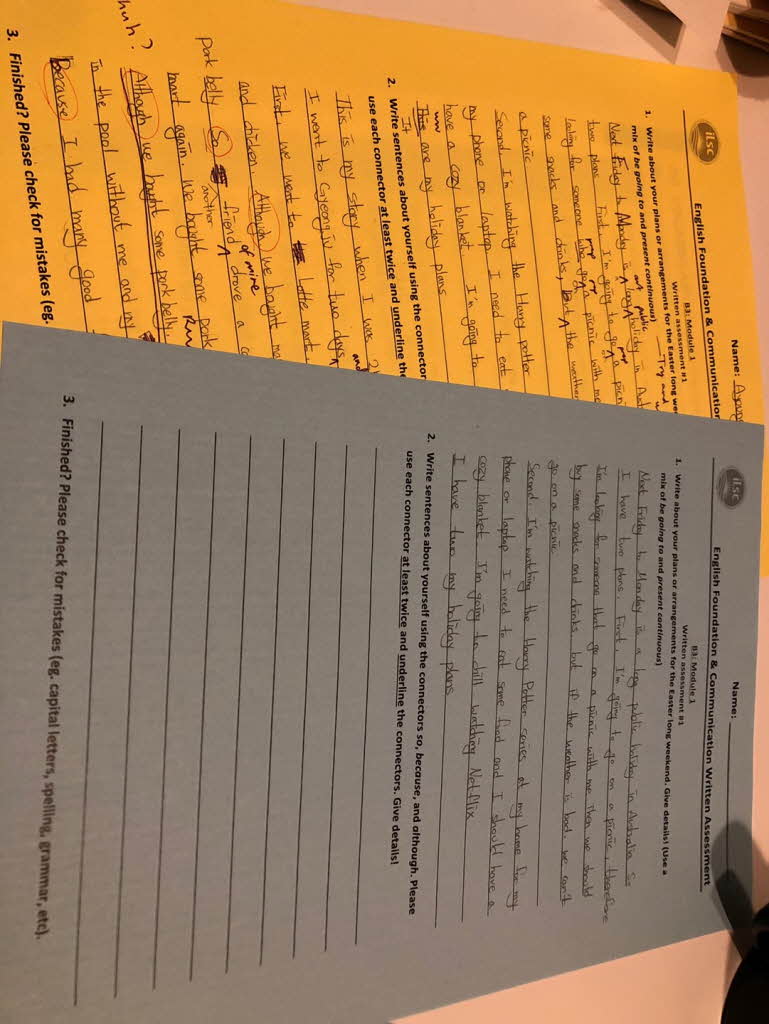 ilsc
English Foundation & Communication
B3: Module 1
Written assessment #1
Name:
1. Write about your plans or arrangements for the Easter long wee
mix of be going to and present continuous)
Try and
Next Friday to Monday is a long holiday in Aust
public
two plans. First I'm going to go a picn
prep
looking for someone who go a picnic with me
some snacks and drinks, but the weather
a picnic
Second I'm watching the Harry potter
my phone or laptop I need to eat
have a cozy blanket I'm going to
ww
This are my holiday plans
2. Write sentences about yourself using the connector
use each connector at least twice and underline the
This is my story when I was 2
I went to Gyeongju for two days
and
First we went to Lotte mart
and chicken Although we bought
of mine
pork belly So friend drove a c
another
mart again. We bought some pork
Run
huh?
Although we bought some pork belly,
in the pool without me and my
Because I had many good
3. Finished? Please check for mistakes (eg.
ilsc
English Foundation & Communication Written Assessment
B3: Module 1
Written assessment #1
Name:
1. Write about your plans or arrangements for the Easter long weekend. Give details! (Use a
mix of be going to and present continuous)
Next Friday to Monday is a long public holiday in Australia so
I have two plans. First, I'm going to go on a picnic, therefore
I'm looking for someone that go on a picnic with me then we should
buy some snacks and drinks but if the weather is bad, we can't
go on a picnic.
Second I'm watching the Harry Potter series at my home for my
phone or laptop I need to eat some food and I should have a
cozy blanket I'm going to chill watching Netflix
I have two my holiday plans
2. Write sentences about yourself using the connectors so, because, and although. Please
use each connector at least twice and underline the connectors. Give details!
3. Finished? Please check for mistakes (eg. capital letters, spelling, grammar, etc).